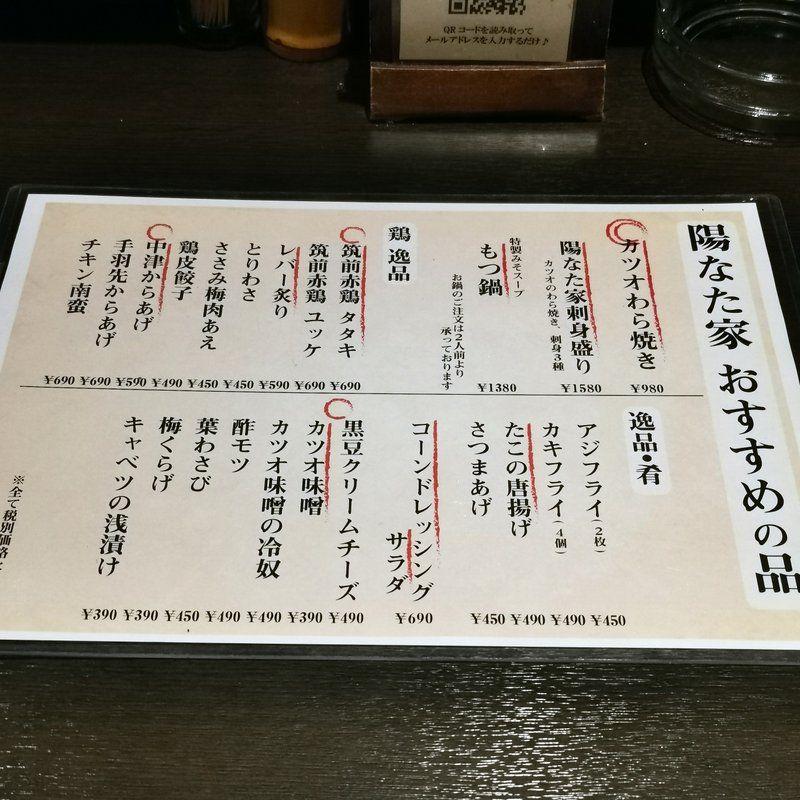 QRコードを読み取って
メールアドレスを入力するだけ♪
陽なた家 おすすめの品
カツオわら焼き
¥980
陽なた家刺身盛り
カツオのわら焼き、刺身3種
¥1580
特製みそスープ
もつ鍋
お鍋のご注文は2人前より
承っております
¥1380
鶏 逸品
筑前赤鶏 タタキ
¥690
筑前赤鶏 ユッケ
¥690
レバー炙り
¥590
とりわさ
¥450
ささみ梅肉あえ
¥450
鶏皮餃子
¥490
中津からあげ
¥590
手羽先からあげ
¥690
チキン南蛮
¥690
逸品・肴
アジフライ(2枚)
¥450
カキフライ(4個)
¥490
たこの唐揚げ
¥490
さつまあげ
¥450
コーンドレッシング
サラダ
¥690
黒豆クリームチーズ
¥490
カツオ味噌
¥390
カツオ味噌の冷奴
¥490
酢モツ
¥490
葉わさび
¥450
梅くらげ
¥390
キャベツの浅漬け
¥390
※全て税別価格